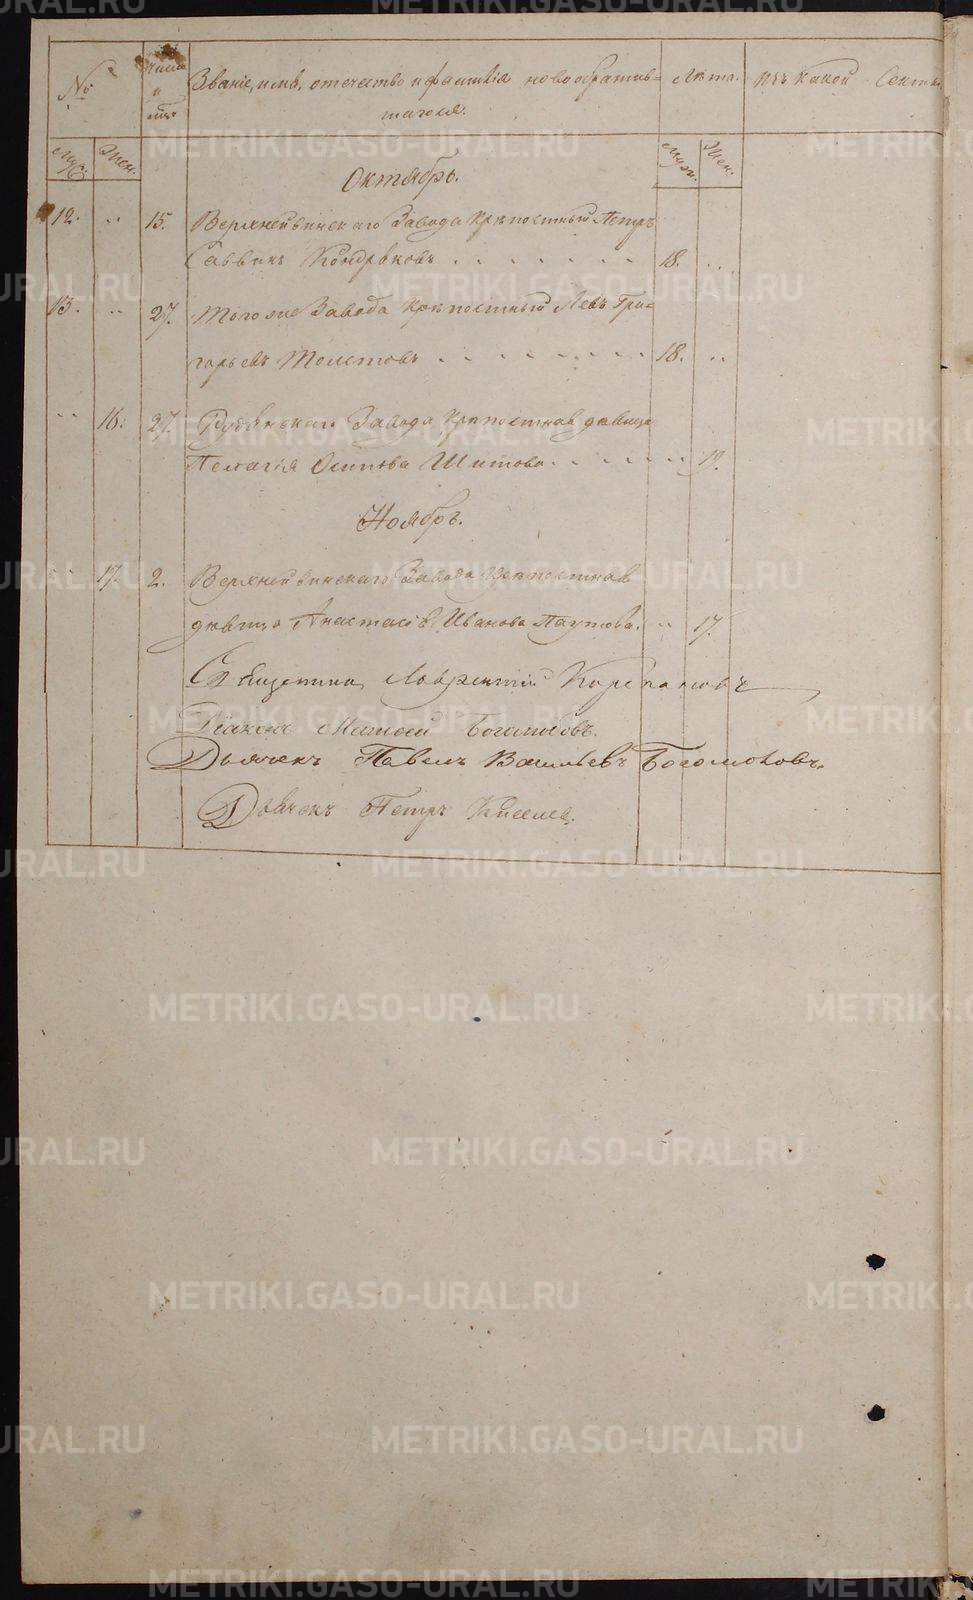 №
Число и м-цъ
Званіе, имя, отечество и фамилія новообратив-
шагося.
Лѣта.
Изъ какой Секты
Муж.
Жен.
Муж.
Жен.
Октябрь.
12. .. 15. Верхнейвинскаго Завода Крѣпостный Петръ
Саввинъ Кондраковъ . . . . . . . 18. ..
13. .. 27. Тогоже Завода Крѣпостный Левъ Гри-
горьевъ Толстовъ . . . . . . . 18. ..
.. 16. 27. Рудянскаго Завода Крѣпостная дѣвица
Пелагія Осипова Шитова . . . . . . 19.
Ноябрь.
.. 17. 2. Верхнейвинскаго Завода Крѣпостная
дѣвица Анастасія Иванова Паутова. .. 17.
Священник Лаврентий
Діаконъ Матфей Богатовъ.
Дьячекъ Павелъ Васильевъ Богомоловъ.
Дьячекъ Петръ Киселев.
METRIKI.GASO-URAL.RU